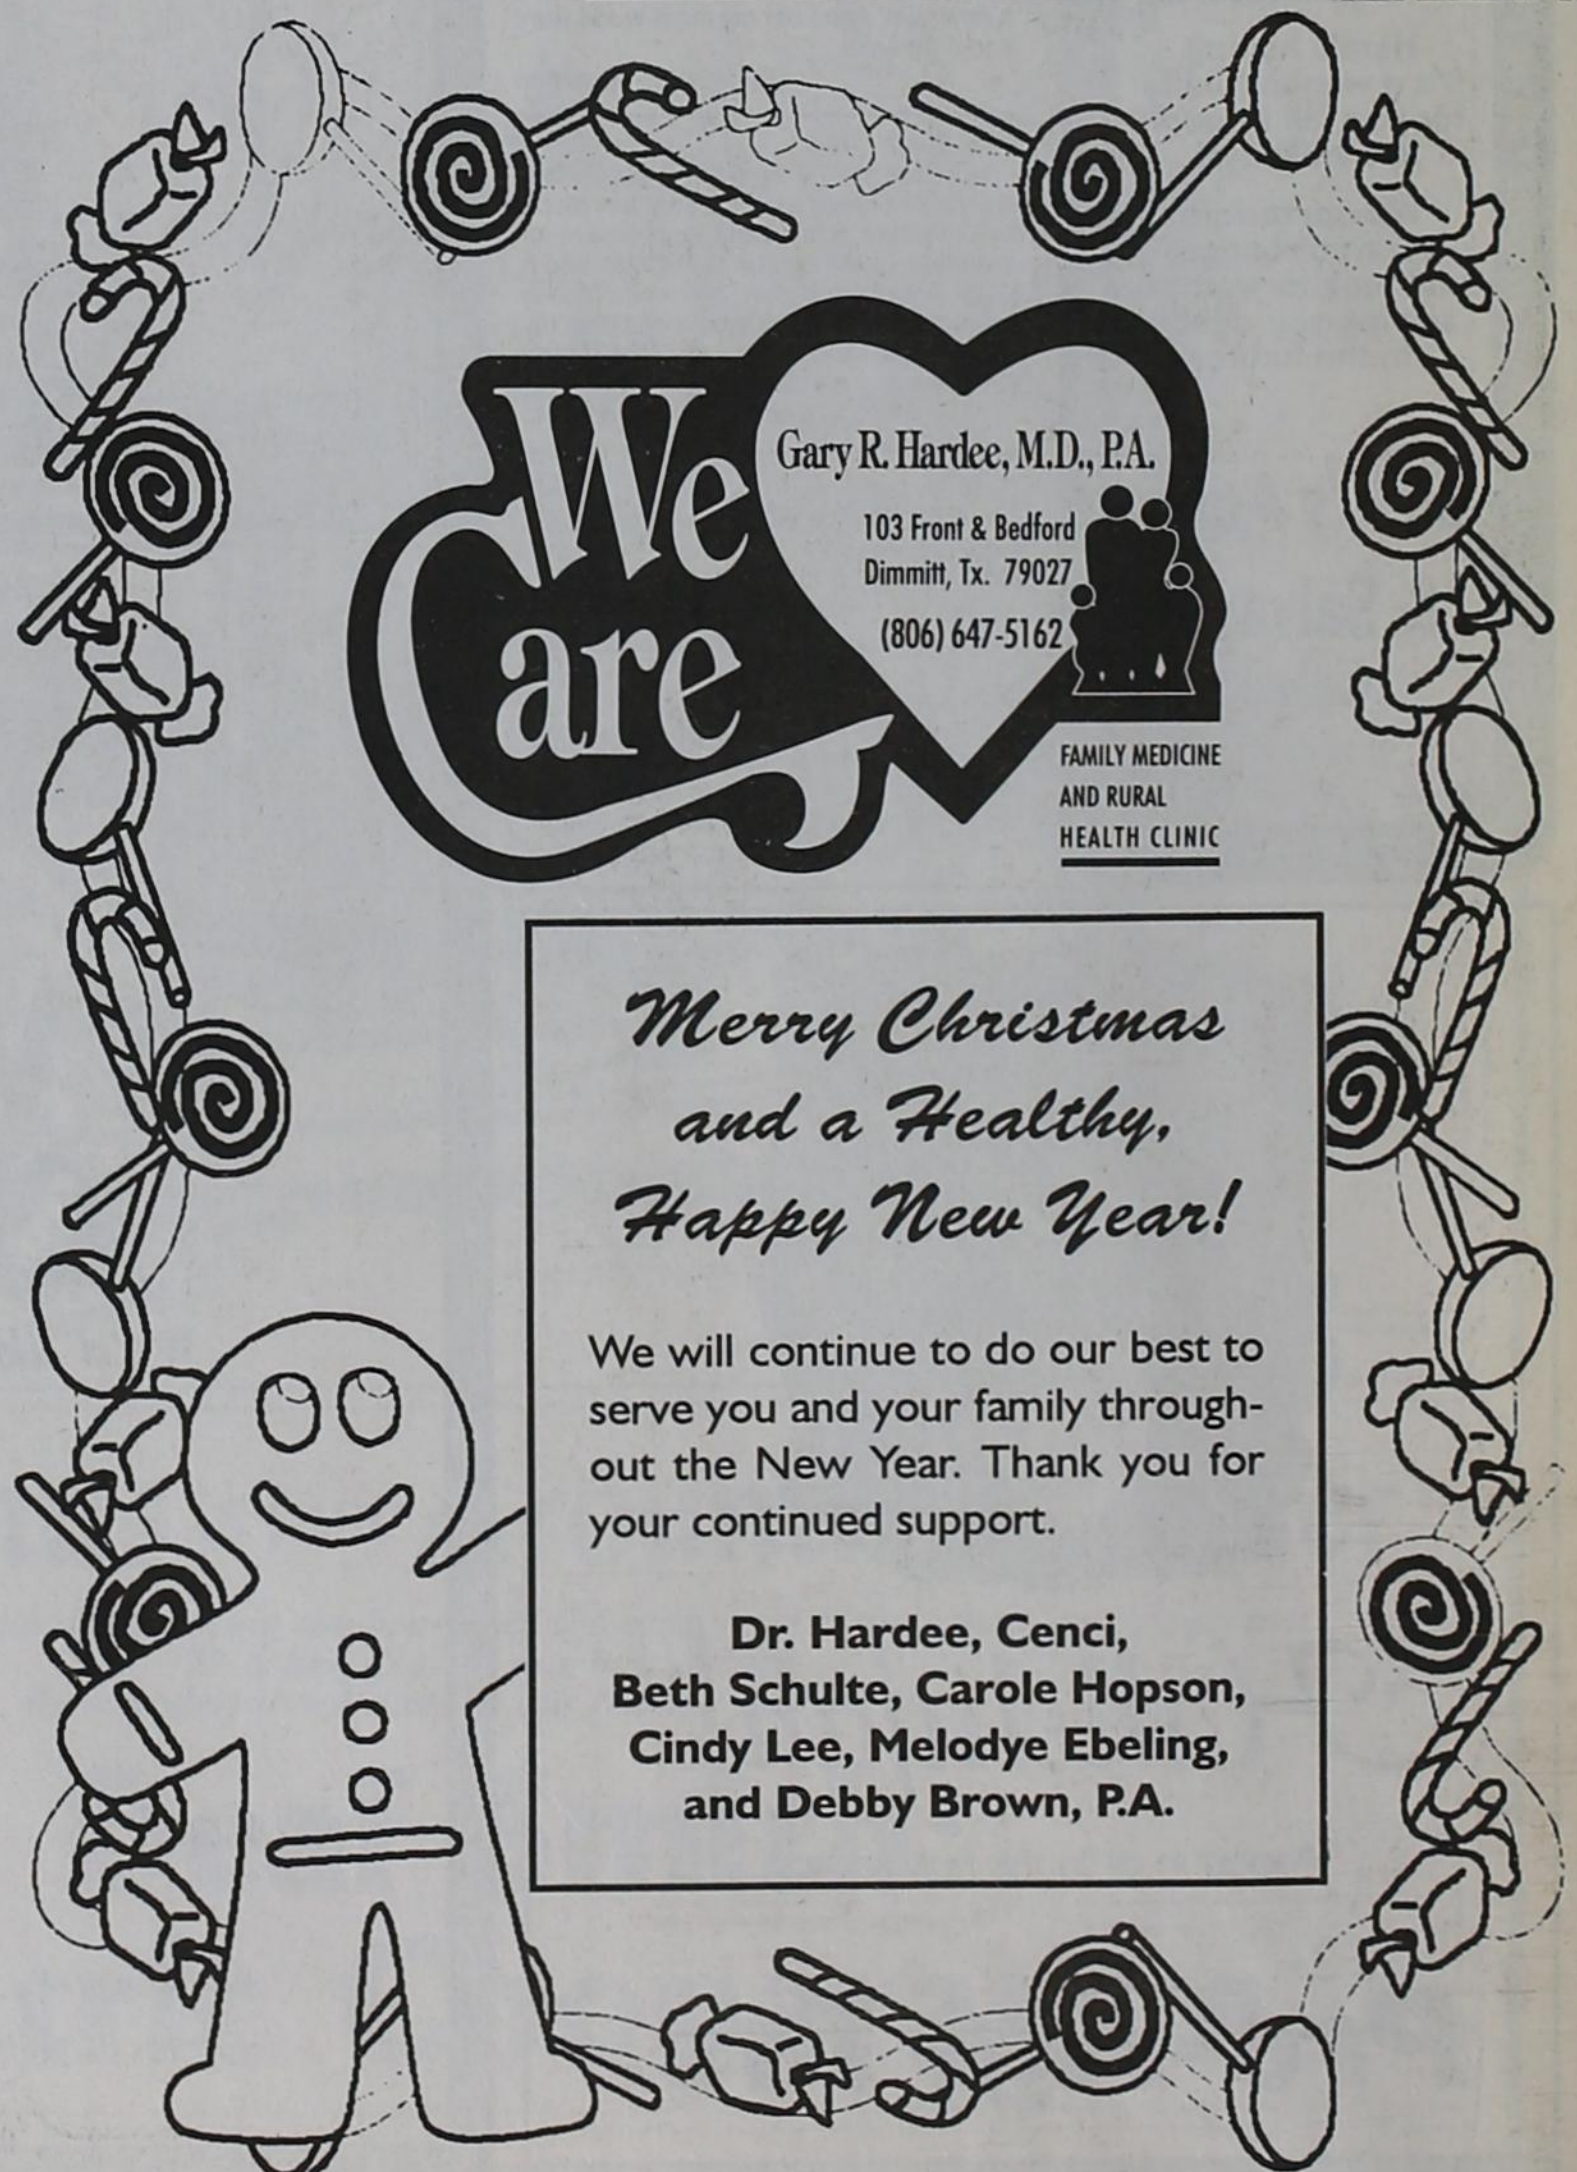 We
Care
Gary R. Hardee, M.D., P.A.
103 Front & Bedford
Dimmitt, Tx. 79027
(806) 647-5162
FAMILY MEDICINE
AND RURAL
HEALTH CLINIC
Merry Christmas
and a Healthy,
Happy New Year!
We will continue to do our best to
serve you and your family through-
out the New Year. Thank you for
your continued support.
Dr. Hardee, Cenci,
Beth Schulte, Carole Hopson,
Cindy Lee, Melodye Ebeling,
and Debby Brown, P.A.